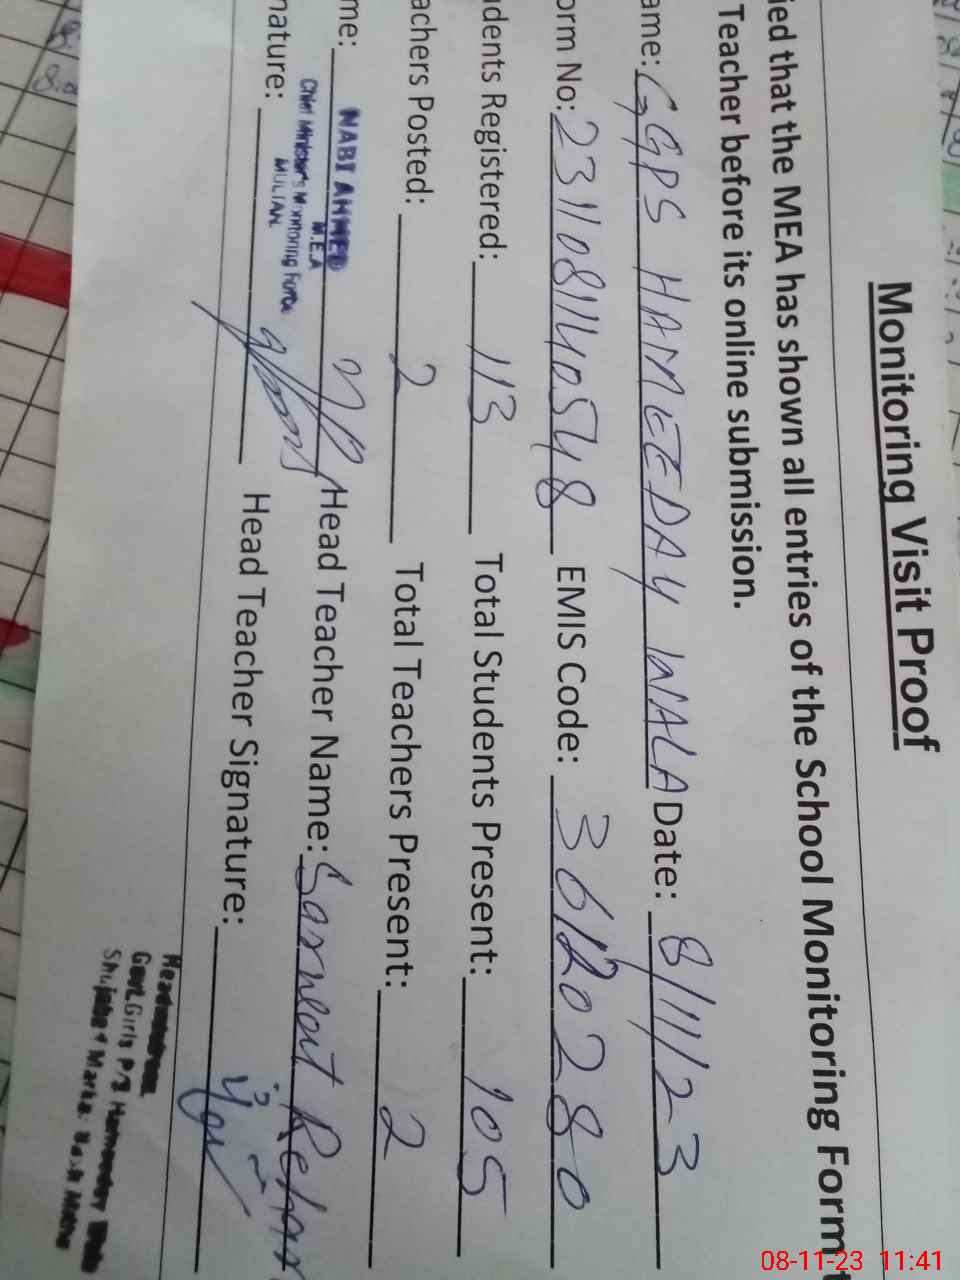 Monitoring Visit Proof
ied that the MEA has shown all entries of the School Monitoring Form
Teacher before its online submission.
ame: GGPS HAMEEDAY WALA Date: 8/11/23
orm No: 23110811410548 EMIS Code: 36120280
dents Registered: 113 Total Students Present: 105
achers Posted: 2 Total Teachers Present: 2
me: NABI AHMED Head Teacher Name: Sarwat Rehan
M.E.A
Chief Minister's Monitoring Force
MULTAN
nature: Head Teacher Signature:
Headmistress
Govt. Girls P/S Hameeday Wala
Shujabad Marka:
08-11-23 11:41